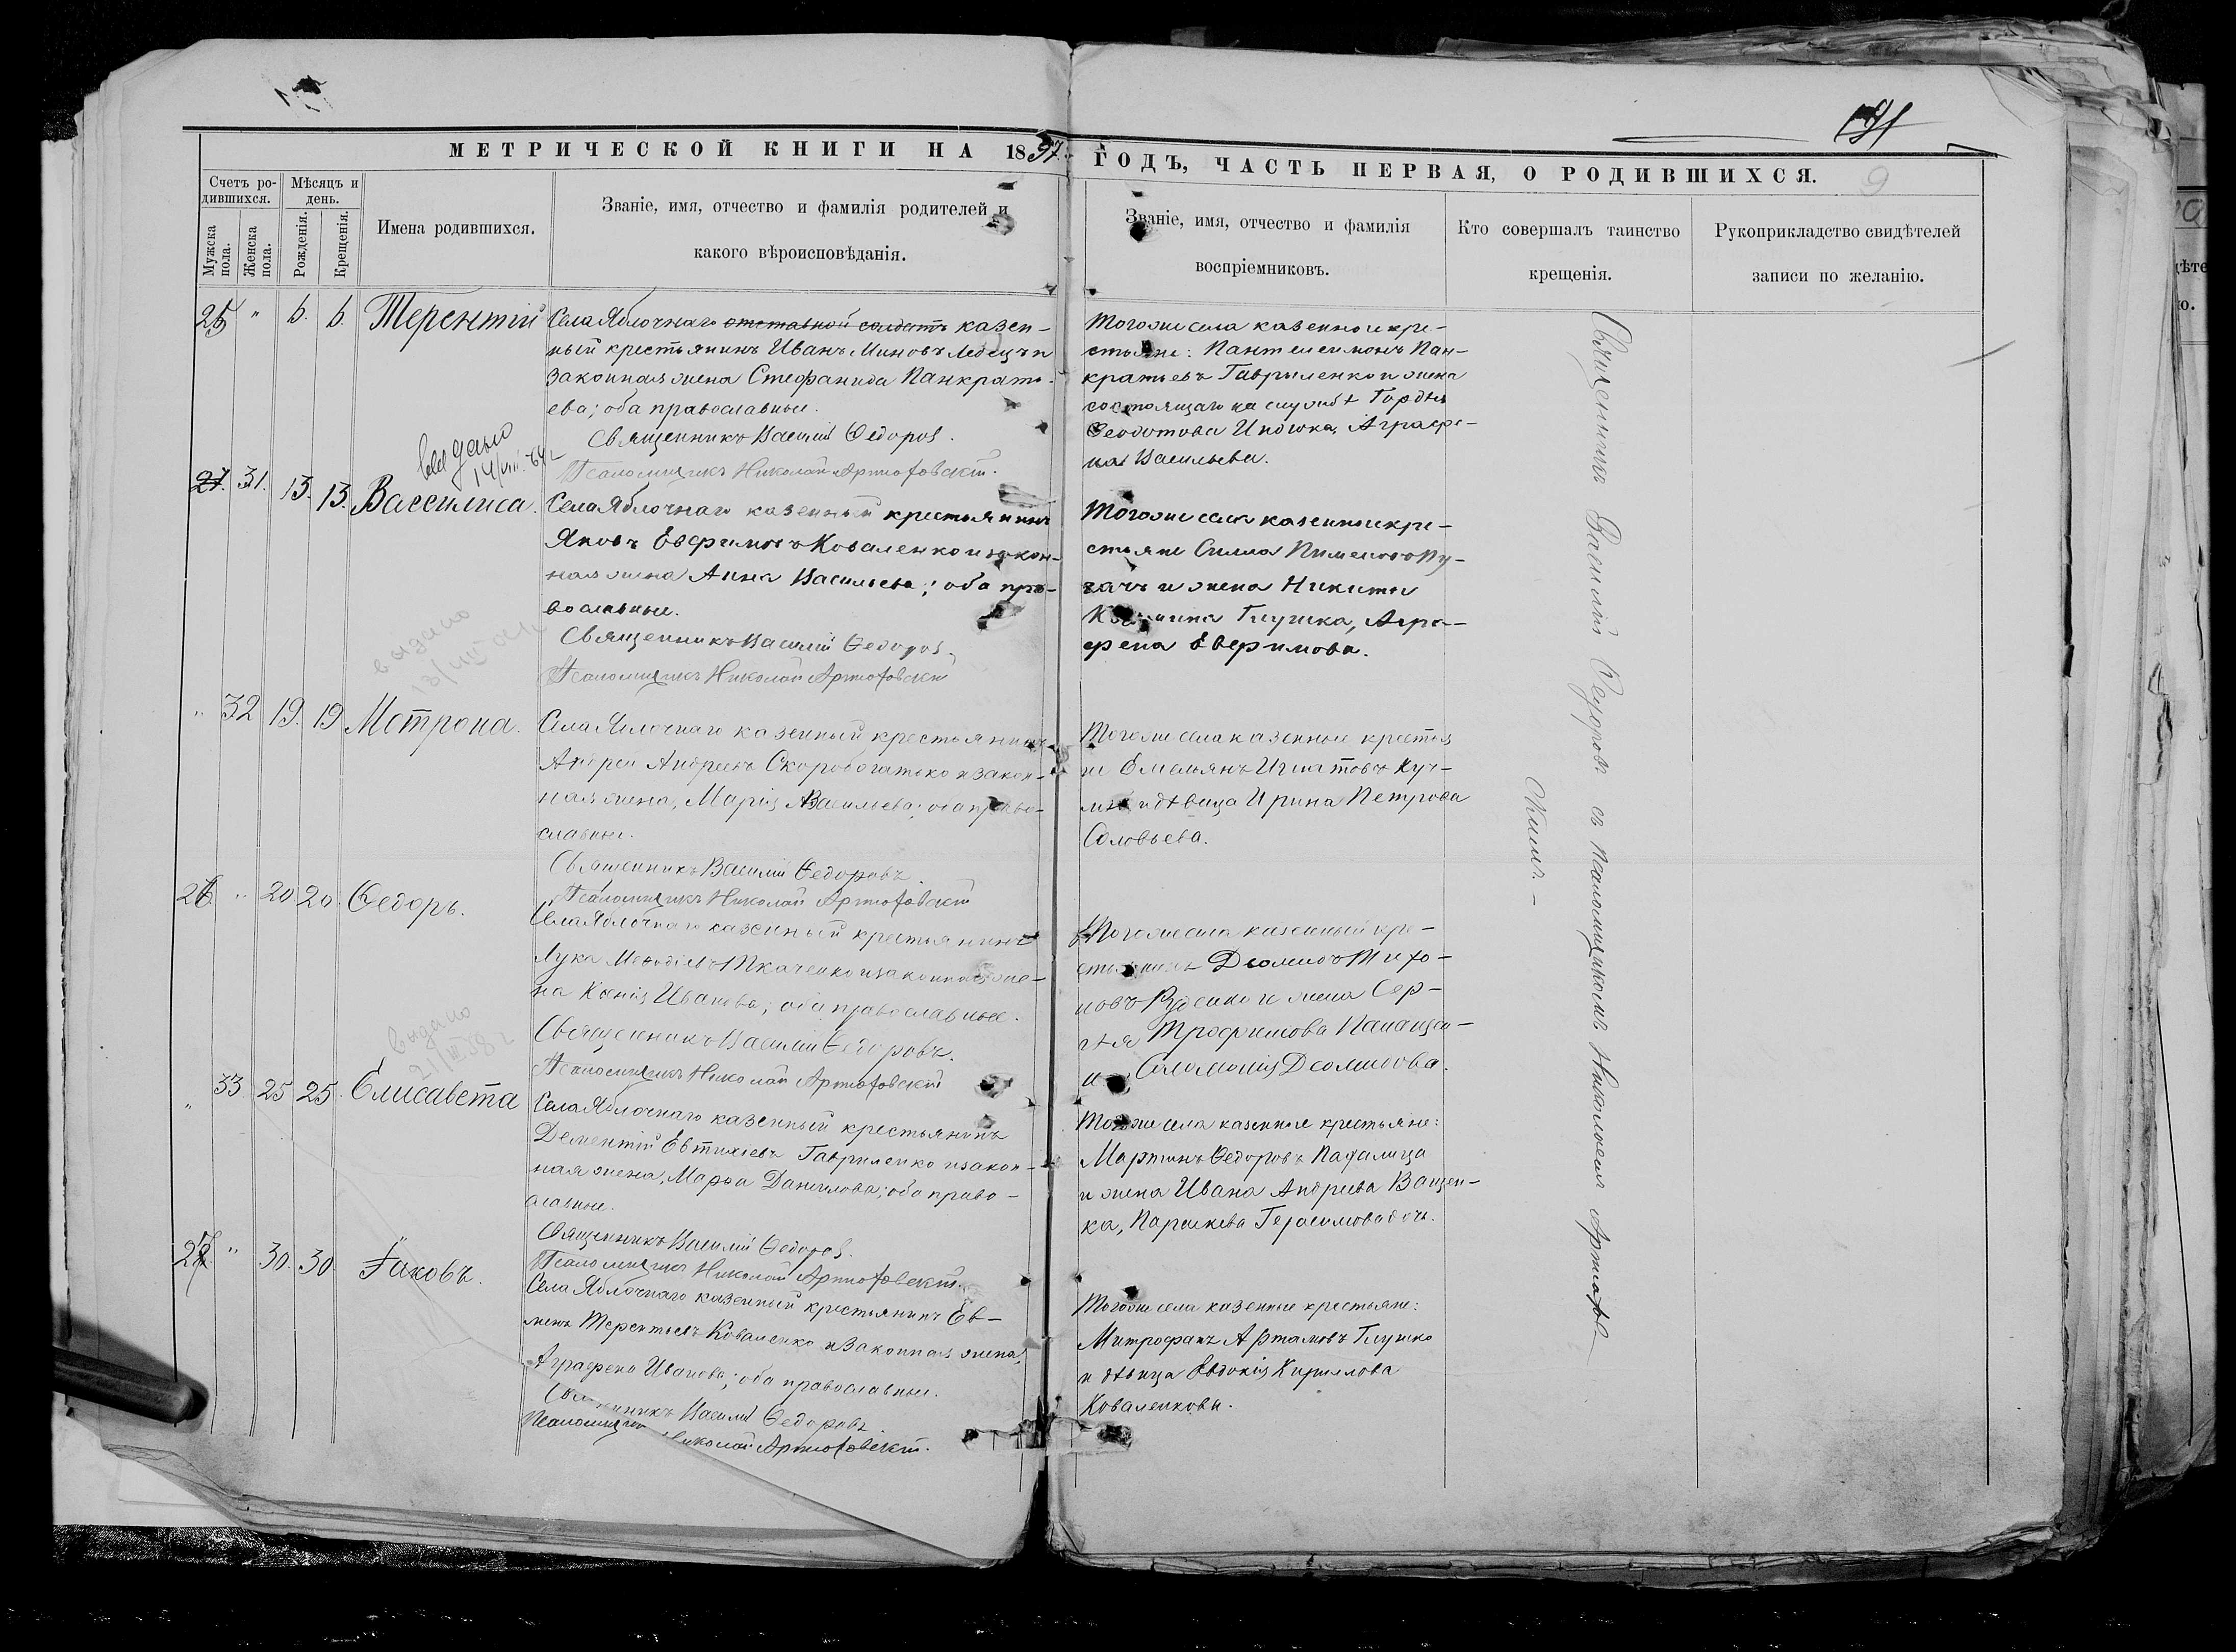 МЕТРИЧЕСКОЙ КНИГИ НА 1897
ГОДЪ, ЧАСТЬ ПЕРВАЯ, О РОДИВШИХСЯ.
9
Счетъ ро-
дившихся.
Мѣсяцъ и
день.
Мужска
пола.
Женска
пола.
Рожденія.
Крещенія.
Имена родившихся.
Званіе, имя, отчество и фамилія родителей и
какого вѣроисповѣданія.
Званіе, имя, отчество и фамилія
воспріемниковъ.
Кто совершалъ таинство
крещенія.
Рукоприкладство свидѣтелей
записи по желанію.
25 " 6. 6. Терентій
Села Яблочнаго отставной солдатъ казен-
ный крестьянинъ Иванъ Миновъ и
законная жена Стефанида Панкрать-
ева; оба православные.
Священникъ Василій Ѳедоров.
Псаломщикъ Николай Артюховскій.
Тогоже села казенные кре-
стьяне: Пантелеимонъ Пан-
кратьевъ Гавриленко и жена
состоящаго на службѣ Гордѣя
Ѳеодотова Индюка, Аграфе-
на Васильева.
выдано
14/VIII-64 г
31. 13. 13. Вассилиса.
Села Яблочнаго казенный крестьянинъ
Яковъ Евфимовъ Коваленко и закон-
ная жена Анна Васильева; оба пра-
вославные.
Священникъ Василій Ѳедоров.
Псаломщикъ Николай Артюховскій
Тогоже села казенные кре-
стьяне Силла Пименовъ Пу-
гачъ и жена Никиты
Глушка, Агра-
фена Евфимова.
выдано
" 32 19. 19 Мотрона.
Села Яблочнаго казенный крестьянинъ
Андрей Андреевъ Скоробогатько и закон-
ная жена, Марія Васильева; оба право-
славные.
Священникъ Василій Ѳедоровъ.
Псаломщикъ Николай Артюховскій
Тогоже села казенные крестья
не Емельянъ Игнатовъ Куч-
и дѣвица Ирина Петрова
Соловьева.
26 " 20 20 Ѳедоръ.
Села Яблочнаго казенный крестьянинъ
Лука Меѳодіевъ Ткаченко и законная же-
на Ксенія Иванова; оба православные.
Священникъ Василій Ѳедоровъ.
Псаломщикъ Николай Артюховскій
Тогоже села казенный кре-
стьянинъ Діомидъ Тихо-
новъ Руденко и жена Сер-
гѣя Трофимова
Соломонія Діомидова.
выдано
" 33 25 25. Елисавета
Села Яблочнаго казенный крестьянинъ
Дементій Евтихіевъ Гавриленко и закон-
ная жена, Марфа Данилова; оба право-
славные.
Священникъ Василій Ѳедоров.
Псаломщикъ Николай Артюховскій.
Тогоже села казенные крестьяне:
Мартинъ Ѳедоровъ Пахалица
и жена Ивана Андреева Ващен-
ка, Параскева Герасимова дочь.
27. " 30. 30 Іаковъ.
Села Яблочнаго казенный крестьянинъ Ев-
менъ Терентьевъ Коваленко и законная жена,
Аграфена Иванова; оба православные.
Священникъ Василій Ѳедоровъ
Псаломщикъ Николай Артюховскій.
Тогоже села казенные крестьяне:
Митрофанъ Артамовъ Глушко
и дѣвица Евдокія Кириллова
Коваленкова.
Священникъ Василій Ѳедоровъ съ Псаломщикомъ Николаемъ Артюхов-
скимъ.-